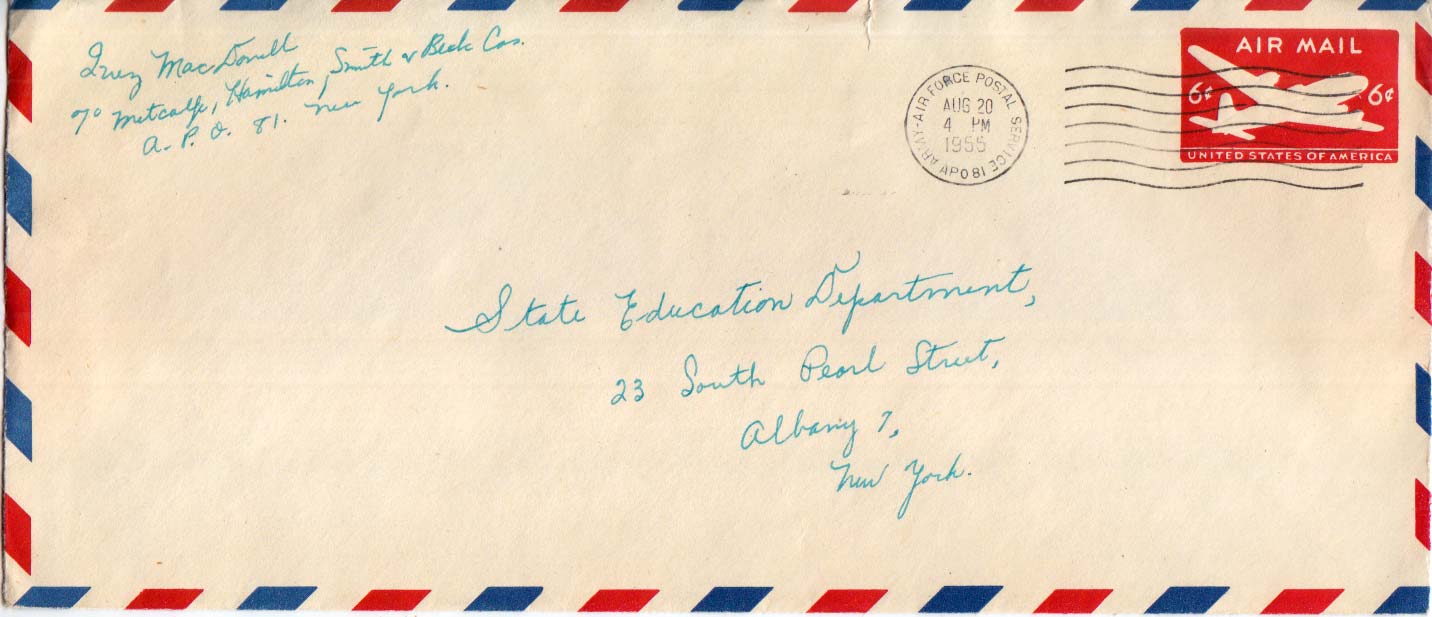 Inez MacDonell
℅ Metcalfe, Hamilton, Smith & Beck Cos.
A. P. O. 81. New York.
ARMY-AIR FORCE POSTAL SERVICE
AUG 20
4 PM
1955
APO 81
AIR MAIL
6¢ 6¢
UNITED STATES OF AMERICA
State Education Department,
23 South Pearl Street,
Albany 7,
New York.